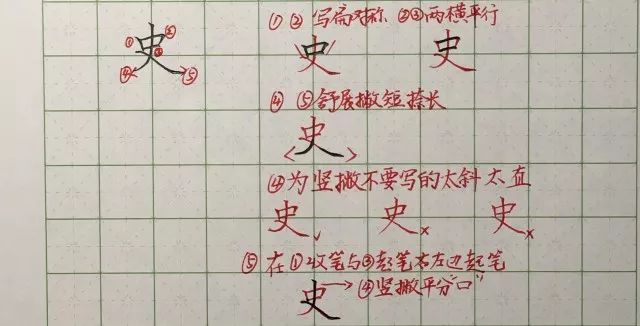 史 ① ② ③ ④ ⑤
① ② 写需对称 ②③两横平行
史 史
④ ⑤舒展撇短捺长
史
④为竖撇不要写的太斜太直
史✓ 史× 史×
⑤在①收笔与③起笔右左边起笔
史→④竖撇平分"口"